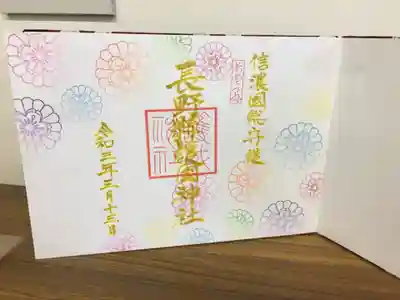 信濃國総守護
長野縣護國神社
令和三年三月十三日